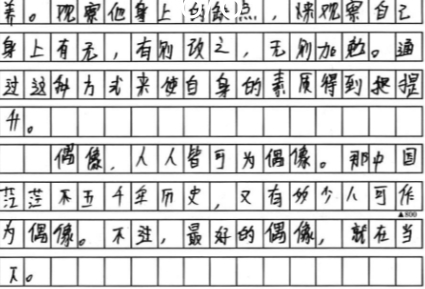 养。观察他身上的缺点，再观察自己
身上有无，有则改之，无则加勉。通
过这种方式来使自身的素质得到提
升。
偶像，人人皆可为偶像。那中国
茫茫不五千年历史，又有多少人可作
▲800
为偶像。不过，最好的偶像，就在当
下。